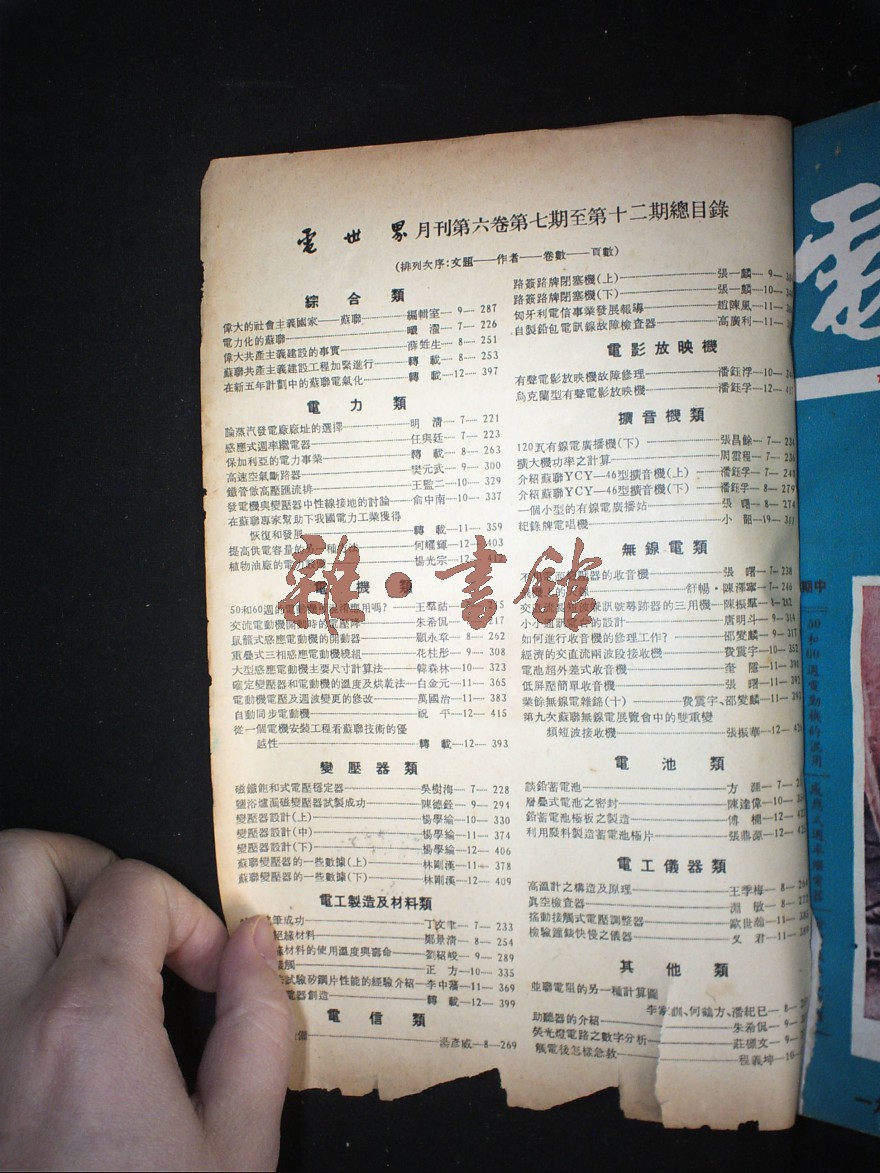 電世界 月刊第六卷第七期至第十二期總目錄
(排列次序:文題——作者——卷數——頁數)
綜合類
偉大的社會主義國家——蘇聯 編輯室—9—287
電力化的蘇聯 7—226
偉大共產主義建設的事實 薛蛙生—8—251
蘇聯共產主義建設工程加緊進行 轉載—8—253
在新五年計劃中的蘇聯電氣化 轉載—12—397
電力類
論蒸汽發電廠廠址的選擇 明清—7—221
感應式週率繼電器 任與廷—7—223
保加利亞的電力事業 轉載—8—263
高速空氣斷路器 樊元武—9—300
鐵管做高壓匯流排 王監二—10—329
發電機與變壓器中性線接地的討論 俞中南—10—337
在蘇聯專家幫助下我國電力工業獲得
恢復和發展 轉載—11—359
提高供電容量的另一種 法 何耀輝—12—403
植物油廠的電力 楊光宗—12—412
電機類
50和60週的電動機 應用嗎? 王羣
交流電動機開動時的電壓降 朱希侃 217
鼠籠式感應電動機的開動器 顧永享—8—262
重疊式三相感應電動機繞組 花桂彤—9—308
大型感應電動機主要尺寸計算法 韓森林—10—323
確定變壓器和電動機的溫度及烘乾法 白金元—11—365
電動機電壓及週波變更的修改 萬國治—11—383
自動同步電動機 祝平—12—415
從一個電機安裝工程看蘇聯技術的優
越性 轉載—12—393
變壓器類
磁鐵飽和式電壓穩定器 吳樹海—7—228
鹽浴爐漏磁變壓器試製成功 陳德銓—9—294
變壓器設計(上) 楊學綸—10—330
變壓器設計(中) 楊學綸—11—374
變壓器設計(下) 楊學綸—12—406
蘇聯變壓器的一些數據(上) 林剛漢—11—378
蘇聯變壓器的一些數據(下) 林剛漢—12—409
電工製造及材料類
筆成功 丁文 —7—233
絕緣材料 鄭景清—8—254
緣材料的使用溫度與壽命 劉紹峻—9—289
接觸 正方—10—335
試驗矽鋼片性能的經驗介紹 李中藩—11—369
電器創造 轉載—12—399
電信類
湯彥威—8—269
路簽路牌閉塞機(上) 張一麟—9—
路簽路牌閉塞機(下) 張一麟—10—
匈牙利電信事業發展報導 趙陳風—11—
自製鉛包電訊線故障檢查器 高廣利—11—
電影放映機
有聲電影放映機故障修理 潘鈺浮—10—
烏克蘭型有聲電影放映機 潘鈺浮—12—
擴音機類
120瓦有線電廣播機(下) 張昌餘—7—234
擴大機功率之計算 周雲程—7—236
介紹蘇聯YCY—46型擴音機(上) 潘鈺浮—7—240
介紹蘇聯YCY—46型擴音機(下) 潘鈺浮—8—279
一個小型的有線電廣播站 張曙—8—274
紀錄牌電唱機 小韶—19—311
無線電類
不用電源變壓器的收音機 張曙—7—238
線 舒暢・陳澤寧—7—246
交直流 短波線訊號尋跡器的三用機 陳振羣—8—282
小小通訊電台的設計 唐明斗—9—314
如何進行收音機的修理工作? 邵燮麟—9—317
經濟的交直流兩波段接收機 費震宇—10—352
電池超外差式收音機 奎 —11—390
低屏壓簡單收音機 張曙—11—392
業餘無線電雜錄(十) 費震宇、邵燮麟—11—39
第九次蘇聯無線電展覽會中的雙重變
頻短波接收機 張振華—12—
電池類
談鉛蓄電池 方 —7—
層疊式電池之密封 陳達偉—10—
鉛蓄電池極板之製造 傅楠—12—42
利用廢料製造蓄電池極片 張鼎源—12—42
電工儀器類
高溫計之構造及原理 王季梅—8—26
真空檢查器 淵敏—8—272
搖動接觸式電壓調整器 歐世瀚—11—385
檢驗鐘錶快慢之儀器 文君—11—
其他類
並聯電阻的另一種計算圖
李家訓、何鶴方、潘杞巳—8—
助聽器的介紹 朱希侃—9—
熒光燈電路之數字分析 莊標文—9—
觸電後怎樣急救 程義坤—10—
雜・書館
電
期中
50和60週電動機的混用
感應式週率繼電器
一九